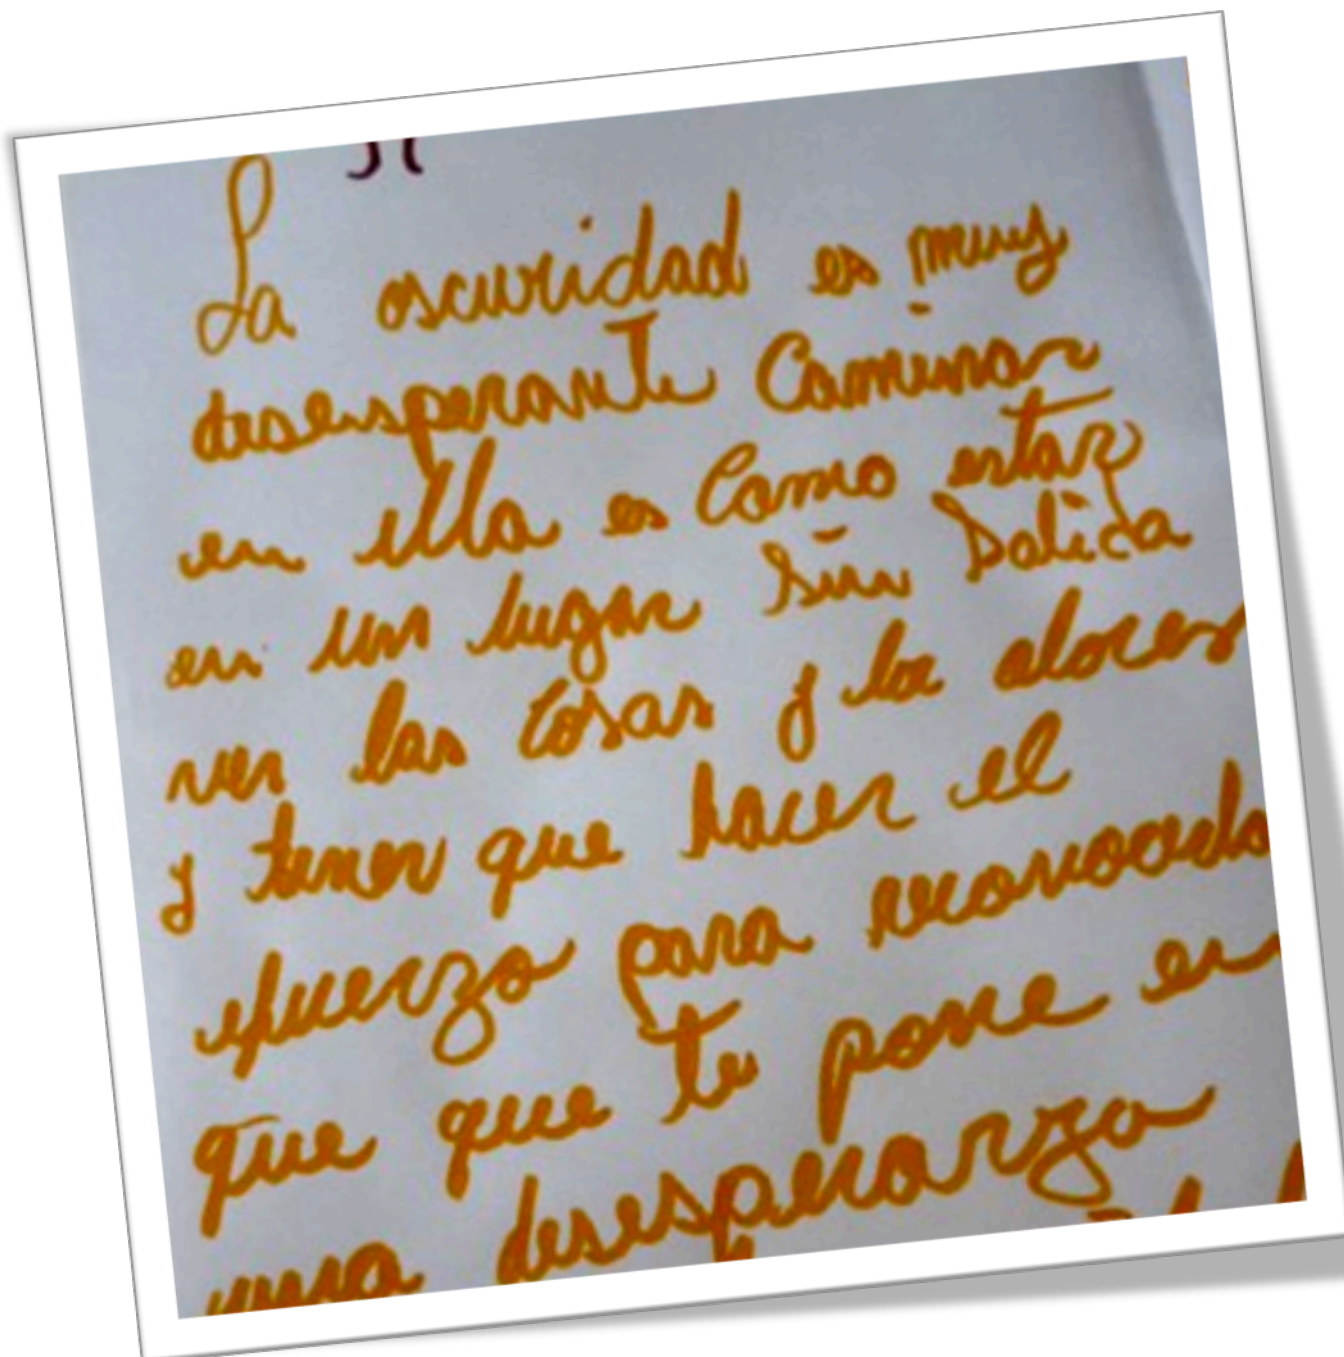 La oscuridad es muy
desesperante Caminar
en ella es Como estar
en un lugar Sin Salida
ver las Cosas y la olores
y tener que hacer el
efuerzo para
que que te pone en
una desesperanza